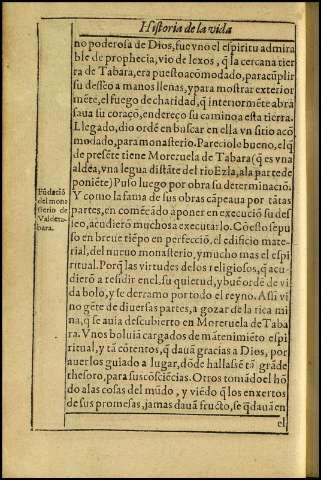 Historia de la vida
no poderosa de Dios, fue vno el espiritu admira
ble de prophecia, vio de lexos, q̃ la cercana tier
ra de Tabara, era puesto acomodado, para cũplir
su desseo a manos llenas, y para mostrar exterior
mẽte, el fuego de charidad, q̃ interiormẽte abra
saua su coraçõ, endereço su camino a esta tierra.
Llegado, dio ordẽ en buscar en ella vn sitio aco
modado, para monasterio. Pareciole bueno, el q̃
de presẽte tiene Morezuela de Tabara (q̃ es vna
aldea, vna legua distãte del rio Ezla, a la parte de
poniẽte) Puso luego por obra su determinaciõ.
Y como la fama de sus obras cãpeaua por tãtas
partes, en comẽçãdo a poner en execuciõ su des
seo, acudierõ muchos a executarlo. Cõ esto se pu
so en breue tiẽpo en perfecciõ, el edificio mate-
rial, del nueuo monasterio, y mucho mas el espi
ritual. Porq̃ las virtudes de los religiosos, q̃ acu-
dierõ a residir en el, su quietud, y buẽ ordẽ de vi
da bolo, y se derramo por todo el reyno. Assi vi
no gẽte de diuersas partes, a gozar de la rica mi
na, q̃ se auia descubierto en Moreruela de Taba
ra. Vnos boluiã cargados de mãtenimiẽto espi
ritual, y tã cõtentos, q̃ dauã gracias a Dios, por
auerlos guiado a lugar, dõde hallassẽ tã grãde
thesoro, para sus cõsciẽcias. Otros tomãdo el hõ
do a las cosas del mũdo, y viẽdo q̃ los enxertos
de sus promesas, jamas dauã fructo, se q̃dauã en
el
Fũdaciõ
del mona
sterio de
Valdeta-
bara.